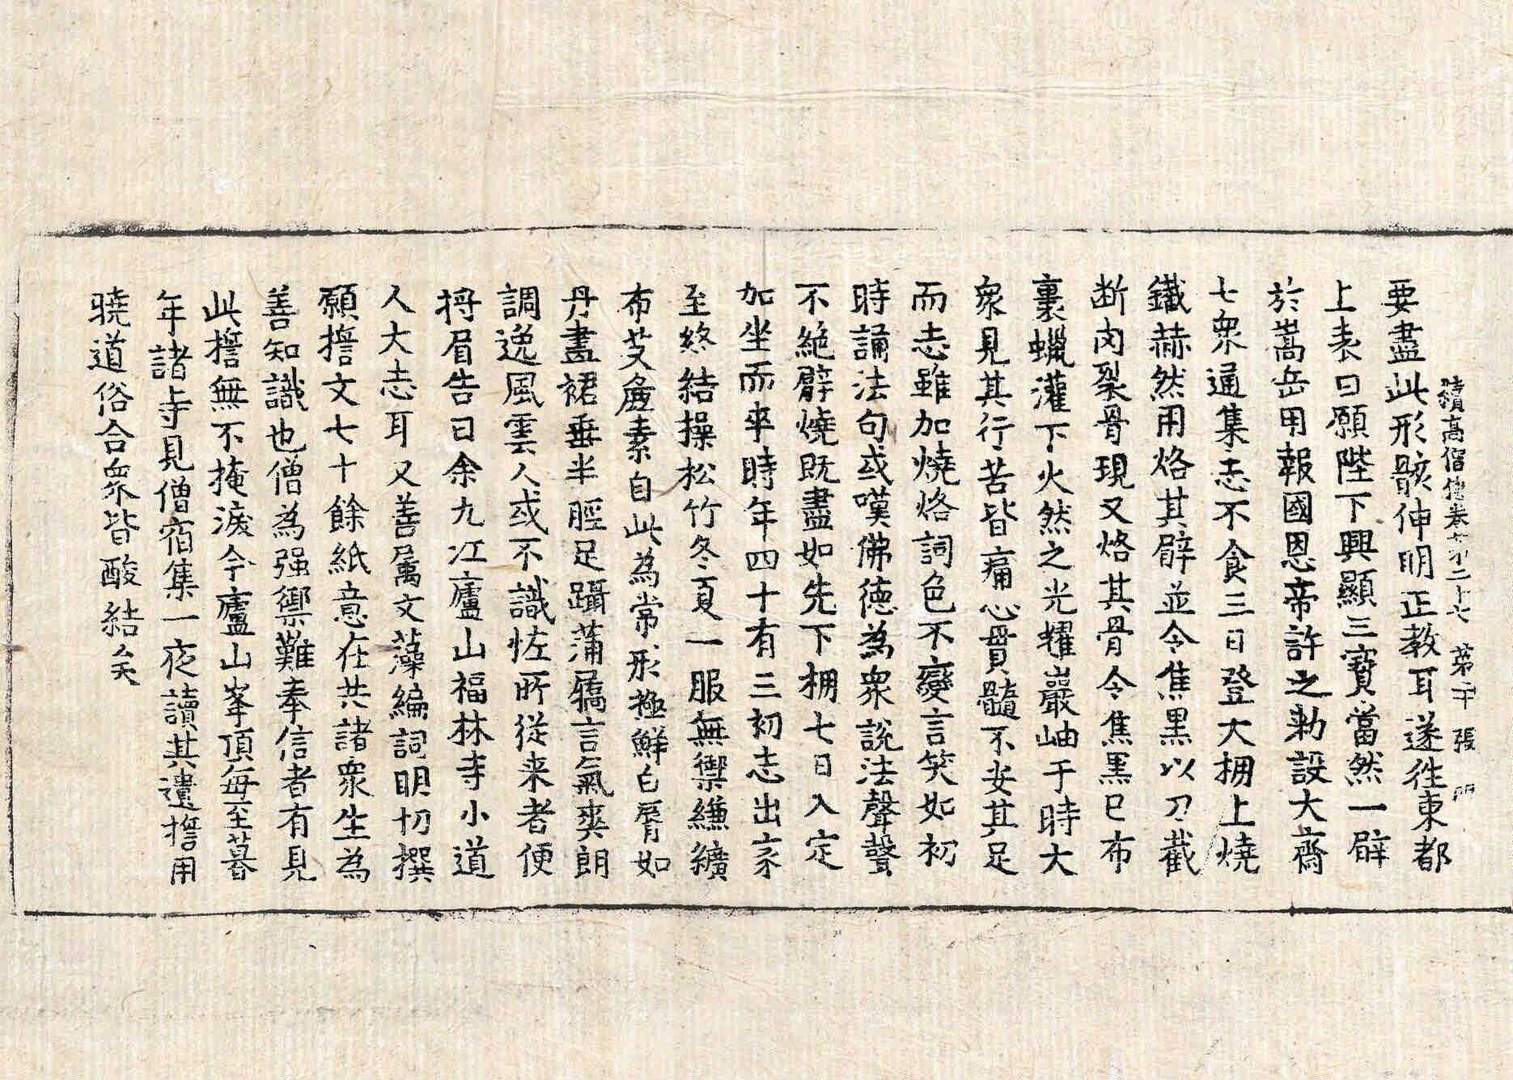 續高僧傳卷第二十七　第二十張
要盡此形骸伸明正教耳遂往東都
上表曰願陛下興顯三寶當然一臂
於嵩岳用報國恩帝許之勅設大齋
七衆通集志不食三日登大棚上燒
鐵赫然用烙其臂並令焦黑以刀截
断肉裂骨現又烙其骨令焦黑已布
裹蠟灌下火然之光耀巖岫于時大
衆見其行苦皆痛心貫髓不安其足
而志雖加燒烙詞色不變言笑如初
時誦法句或嘆佛德為衆說法聲聲
不絶臂燒既盡如先下棚七日入定
加坐而卒時年四十有三初志出家
至終結操松竹冬夏一服無禦縑纊
布艾麁素自此為常形極鮮白脣如
丹畫裙垂半脛足躡蒲屩言氣爽朗
調逸風雲人或不識恠所從来者便
捋眉告曰余九江廬山福林寺小道
人大志耳又善属文藻編詞明切撰
願誓文七十餘紙意在共諸衆生為
善知識也僧為强禦難奉信者有見
此誓無不掩淚今廬山峯頂每至暮
年諸寺見僧宿集一夜讀其遺誓用
曉道俗合衆皆酸結矣